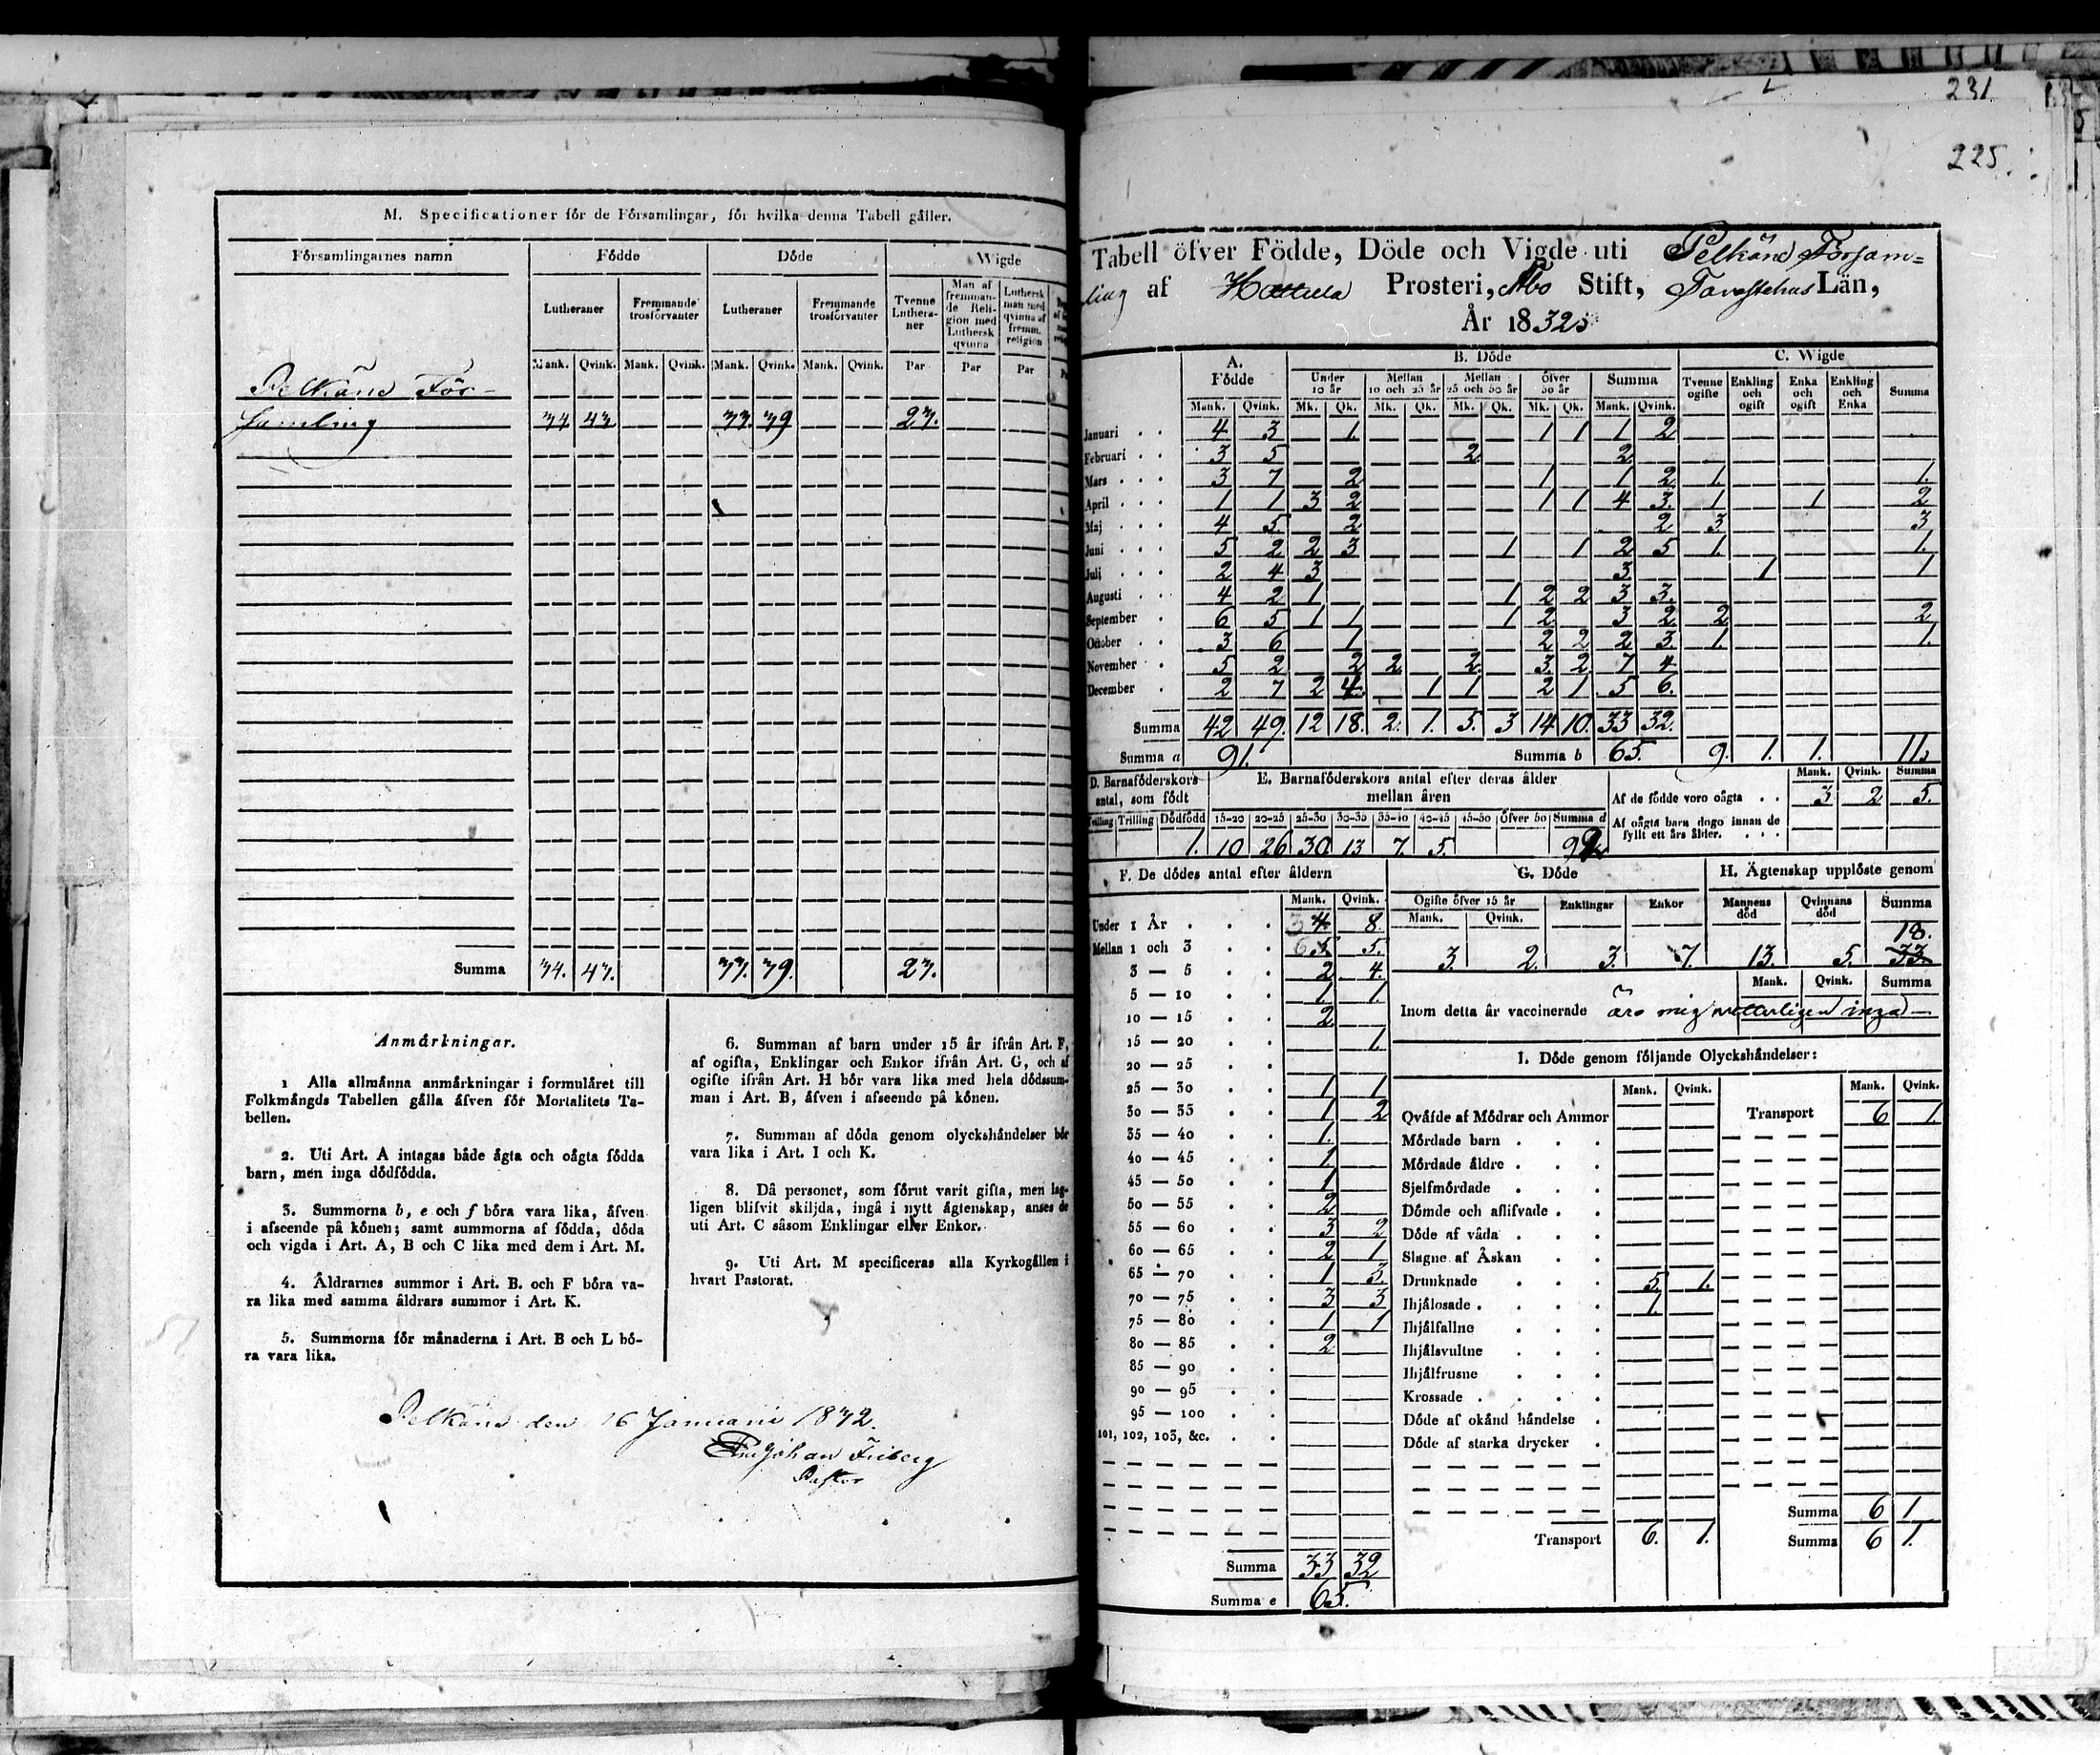 M. Specificationer för de Församlingar, för hvilka denna Tabell gäller.
Församlingarnes namn Födde Döde Wigde
Lutheraner Fremmande trosförvanter Lutheraner Fremmande trosförvanter Tvenne Lutheraner Man af fremmande Religion med Luthersk qvinna Luthersk man med qvinna af fremm. religion
Mank. Qvink. Mank. Qvink. Mank. Qvink. Mank. Qvink. Par Par Par
Pelkäne För-
samling 34 43 33. 39 23.
Summa 34. 43. 33. 39. 23.
Anmärkningar.
1 Alla allmänna anmärkningar i formuläret till
Folkmängds Tabellen gälla äfven för Mortalitets Ta-
bellen.
2. Uti Art. A intagas både ägta och oägta födda
barn, men inga dödfödda.
3. Summorna b, e och f böra vara lika, äfven
i afseende på könen; samt summorna af födda, döda
och vigda i Art. A, B och C lika med dem i Art. M.
4. Åldrarnes summor i Art. B. och F böra va-
ra lika med samma åldrars summor i Art. K.
5. Summorna för månaderna i Art. B och L bö-
ra vara lika.
6. Summan af barn under 15 år ifrån Art. F,
af ogifta, Enklingar och Enkor ifrån Art. G, och af
ogifte ifrån Art. H bör vara lika med hela dödssum-
man i Art. B, äfven i afseende på könen.
7. Summan af döda genom olyckshändelser bör
vara lika i Art. I och K.
8. Då personer, som förut varit gifta, men lag-
ligen blifvit skiljda, ingå i nytt ägtenskap, anses de
uti Art. C såsom Enklingar eller Enkor.
9. Uti Art. M specificeras alla Kyrkogällen i
hvart Pastorat.
Pelkäne den 16 Januarii 1832.
Johan Friberg
Pastor
231
225.
Tabell öfver Födde, Döde och Vigde uti Pelkäne Försam=
ling af Hattula Prosteri, Åbo Stift, Tavastehus Län,
År 1832
A. Födde B. Döde C. Wigde
Under 10 år Mellan 10 och 25 år Mellan 25 och 50 år Öfver 50 år Summa Tvenne ogifte Enkling och ogift Enka och ogift Enkling och Enka Summa
Mank. Qvink. Mk. Qk. Mk. Qk. Mk. Qk. Mk. Qk. Mank. Qvink.
Januari 4 3 1. 1 1 1 2
Februari 3 5 2 2
Mars 3 7 2 1 1 2 1. 1.
April 1 1 3 2 1 1 4 3. 1 1 2
Maj 4 5. 2 2 3 3
Juni 5 2 2 3 1 1 2 5 1. 1.
Juli 2 4 3 3 1 1
Augusti 4 2 1 1 2 2 3 3.
September 6 5 1 1 1 2 3 2 2 2
October 3 6 1 2 2 2 3. 1. 1.
November 5 2 2 2. 2. 3. 2 7 4
December 2 7 2 4 1 1 2 1 5 6.
Summa 42 49. 12 18. 2. 1. 5. 3 14 10. 33 32.
Summa a 91. Summa b 65. 9. 1. 1. 11
D. Barnaföderskors antal, som födt
E. Barnaföderskors antal efter deras ålder mellan åren
Mank. Qvink. Summa
Af de födde voro oägta 3 2 5.
Af oägta barn dogo innan de
fyllt ett års ålder.
Tvilling Trilling Dödfödd 15-20 20-25 25-30 30-35 35-40 40-45 45-50 Öfver 50 Summa d
1. 10 26 30 13 7. 5.
F. De dödes antal efter åldern
Mank. Qvink.
Under 1 År 4 8.
Mellan 1 och 3 5 5.
3 — 5 2 4.
5 — 10 1 1.
10 — 15 2
15 — 20 1.
20 — 25
25 — 30 1 1
30 — 35 1 2
35 — 40 1.
40 — 45 1.
45 — 50 1
50 — 55 2
55 — 60 3 2
60 — 65 2 1
65 — 70 1 3.
70 — 75 3 3
75 — 80 1 1
80 — 85 2
85 — 90
90 — 95
95 — 100
101, 102, 103, &c.
Summa 33 32
Summa e 65.
G. Döde
Ogifte öfver 15 år Enklingar Enkor
Mank. Qvink.
3. 2. 3. 7.
H. Ägtenskap upplöste genom
Mannens död Qvinnans död Summa
18.
13. 5. 33
Mank. Qvink. Summa
Inom detta år vaccinerade äro mig vetterligen inga
I. Döde genom följande Olyckshändelser:
Mank. Qvink. Mank. Qvink.
Qväfde af Mödrar och Ammor Transport 6 1.
Mördade barn
Mördade äldre
Sjelfmördade
Dömde och aflifvade
Döde af våda
Slagne af Åskan
Drunknade 5. 1.
Ihjälosade 1.
Ihjälfallne
Ihjälsvultne
Ihjälfrusne
Krossade
Döde af okänd händelse
Döde af starka drycker
Summa 6 1
Transport 6. 1. Summa 6 1.